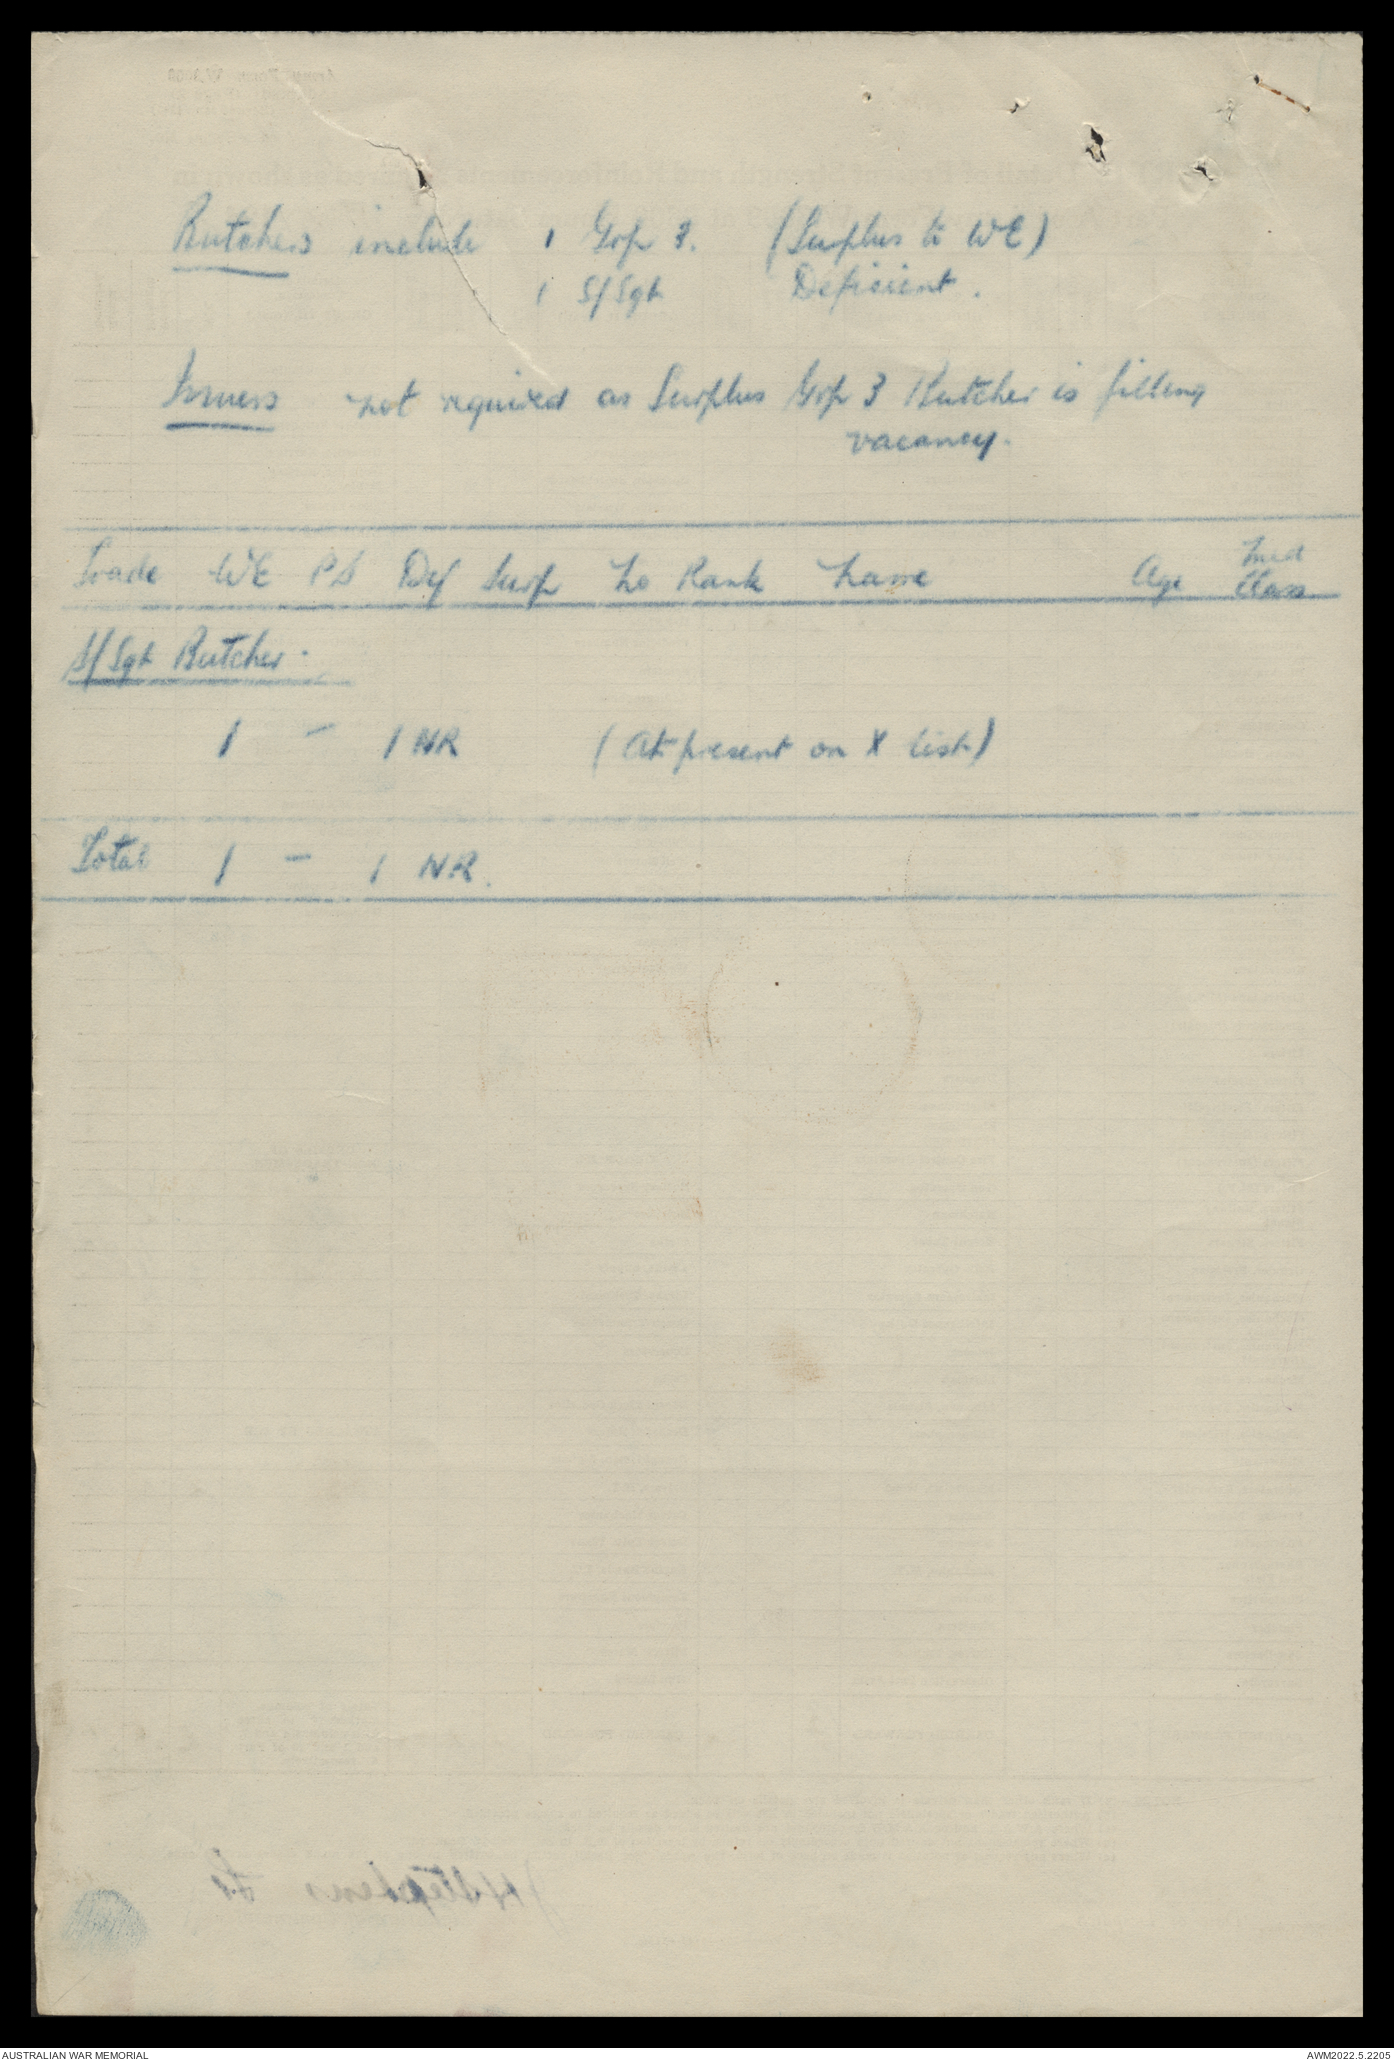 Butchers include 1 Grp 3. (Surplus to WE)
1 S/Sgt Deficient.
Issuers not required as Surplus Grp 3 Butcher is filling
vacancy.
Trade WE PS Def Surp No Rank Name Age Med Class
S/Sgt Butcher.
1 - 1 NR (At present on X list)
Total 1 - 1 NR.
AUSTRALIAN WAR MEMORIAL
AWM2022.5.2205